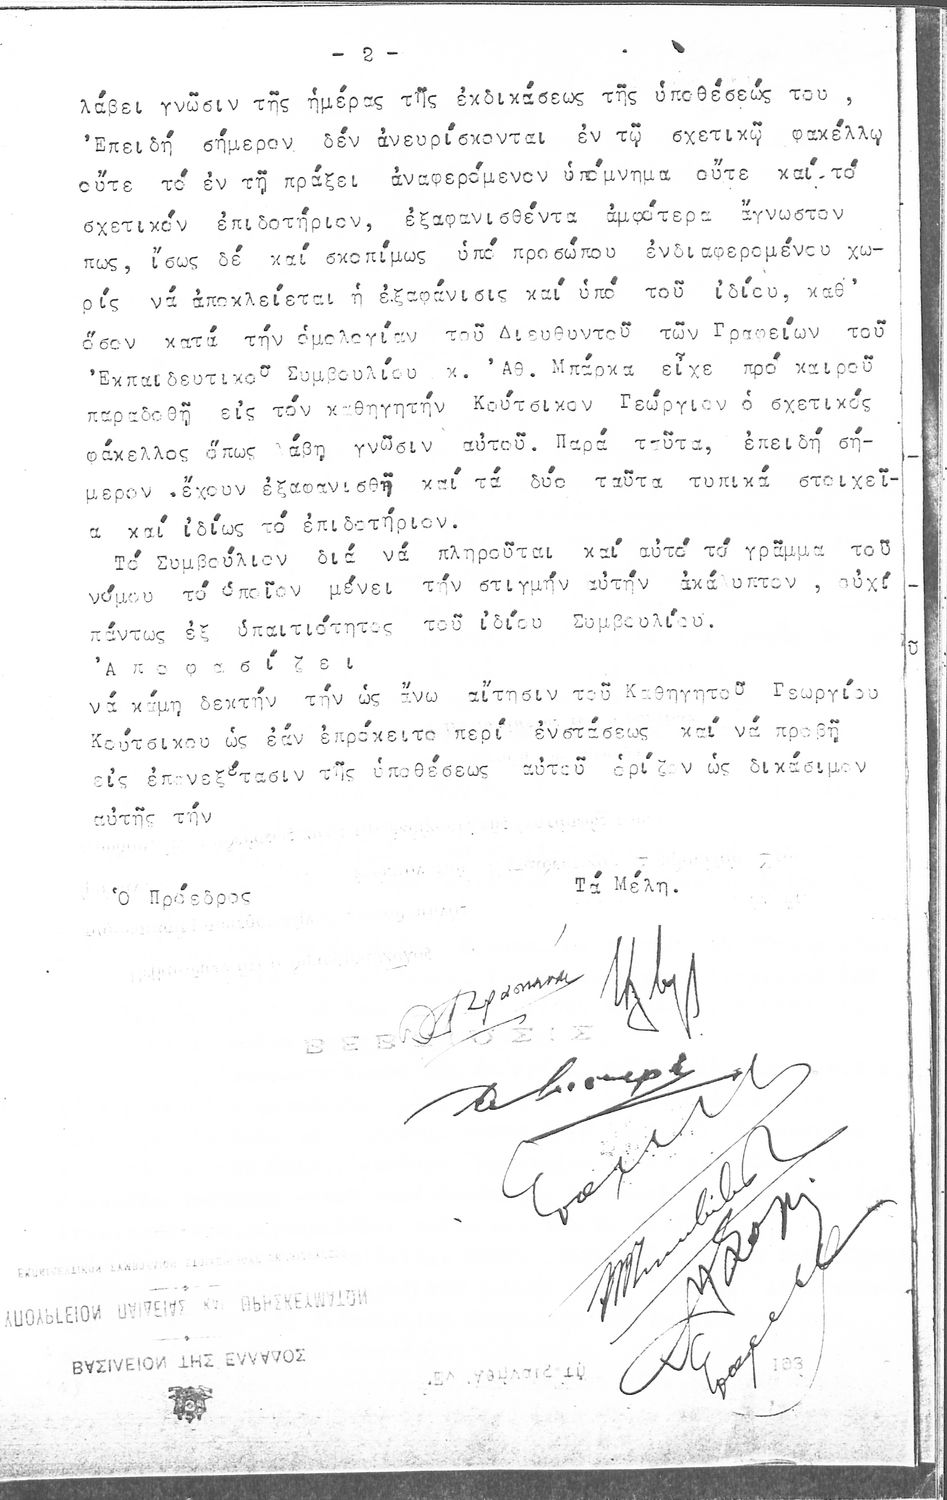 - 2 -
λάβει γνῶσιν τῆς ἡμέρας τῆς ἐκδικάσεως τῆς ὑποθέσεώς του ,
Ἐπειδή σήμερον δέν ἀνευρίσκονται ἐν τῷ σχετικῷ φακέλλῳ
οὔτε τό ἐν τῇ πράξει ἀναφερόμενον ὑπόμνημα οὔτε καί τό
σχετικόν ἐπιδοτήριον, ἐξαφανισθέντα ἀμφότερα ἄγνωστον
πως, ἴσως δέ καί σκοπίμως ὑπό προσώπου ἐνδιαφερομένου χω-
ρίς νά ἀποκλείεται ἡ ἐξαφάνισις καί ὑπό τοῦ ἰδίου, καθ'
ὅσον κατά τήν ὁμολογίαν τοῦ Διευθυντοῦ τῶν Γραφείων τοῦ
Ἐκπαιδευτικοῦ Συμβουλίου κ. Ἀθ. Μπάρκα εἶχε πρό καιροῦ
παραδοθῆ εἰς τόν καθηγητήν Κούτσικον Γεώργιον ὁ σχετικός
φάκελλος ὅπως λάβη γνῶσιν αὐτοῦ. Παρά ταῦτα, ἐπειδή σή-
μερον ἔχουν ἐξαφανισθῆ καί τά δύο ταῦτα τυπικά στοιχεῖ-
α καί ἰδίως τό ἐπιδοτήριον.
Τό Συμβούλιον διά νά πληροῦται καί αὐτό τό γρᾶμμα τοῦ
νόμου τό ὁποῖον μένει τήν στιγμήν αὐτήν ἀκάλυπτον , οὐχί
πάντως ἐξ ὑπαιτιότητος τοῦ ἰδίου Συμβουλίου.
Ἀ π ο φ α σ ί ζ ε ι
νά κάμη δεκτήν τήν ὡς ἄνω αἴτησιν τοῦ Καθηγητοῦ Γεωργίου
Κούτσικου ὡς ἐάν ἐπρόκειτο περί ἐνστάσεως καί νά προβῆ
εἰς ἐπανεξέτασιν τῆς ὑποθέσεως αὐτοῦ ὁρίζον ὡς δικάσιμον
αὐτῆς τήν
Ὁ Πρόεδρος Τά Μέλη.
ΥΠΟΥΡΓΕΙΟΝ ΠΑΙΔΕΙΑΣ ΚΑΙ ΘΡΗΣΚΕΥΜΑΤΩΝ
ΒΑΣΙΛΕΙΟΝ ΤΗΣ ΕΛΛΑΔΟΣ
Ἐν Ἀθήναις τῇ 193